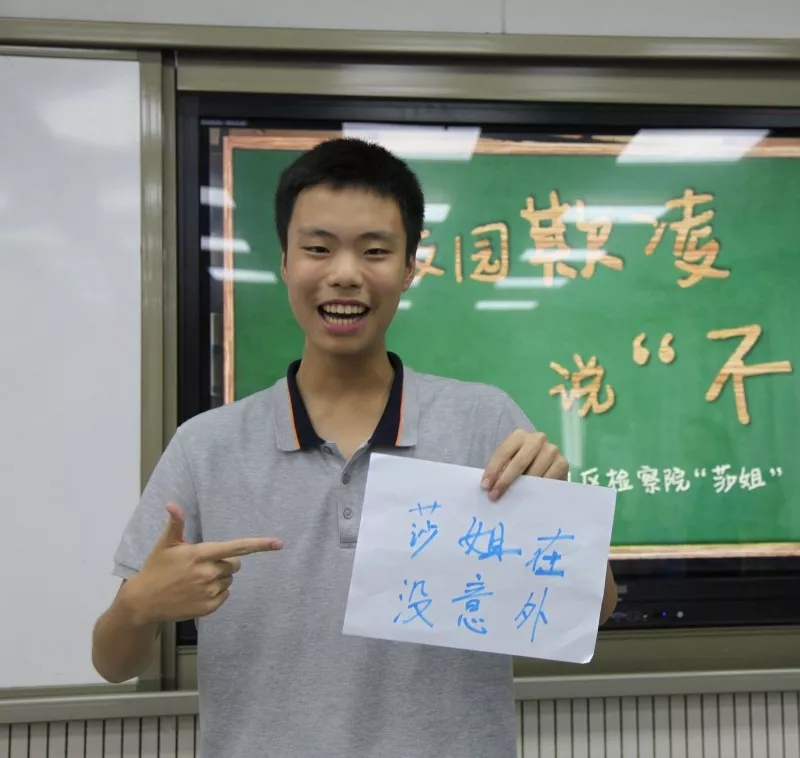 园欺凌
说“不
区检察院“莎姐”
莎姐在
没意外